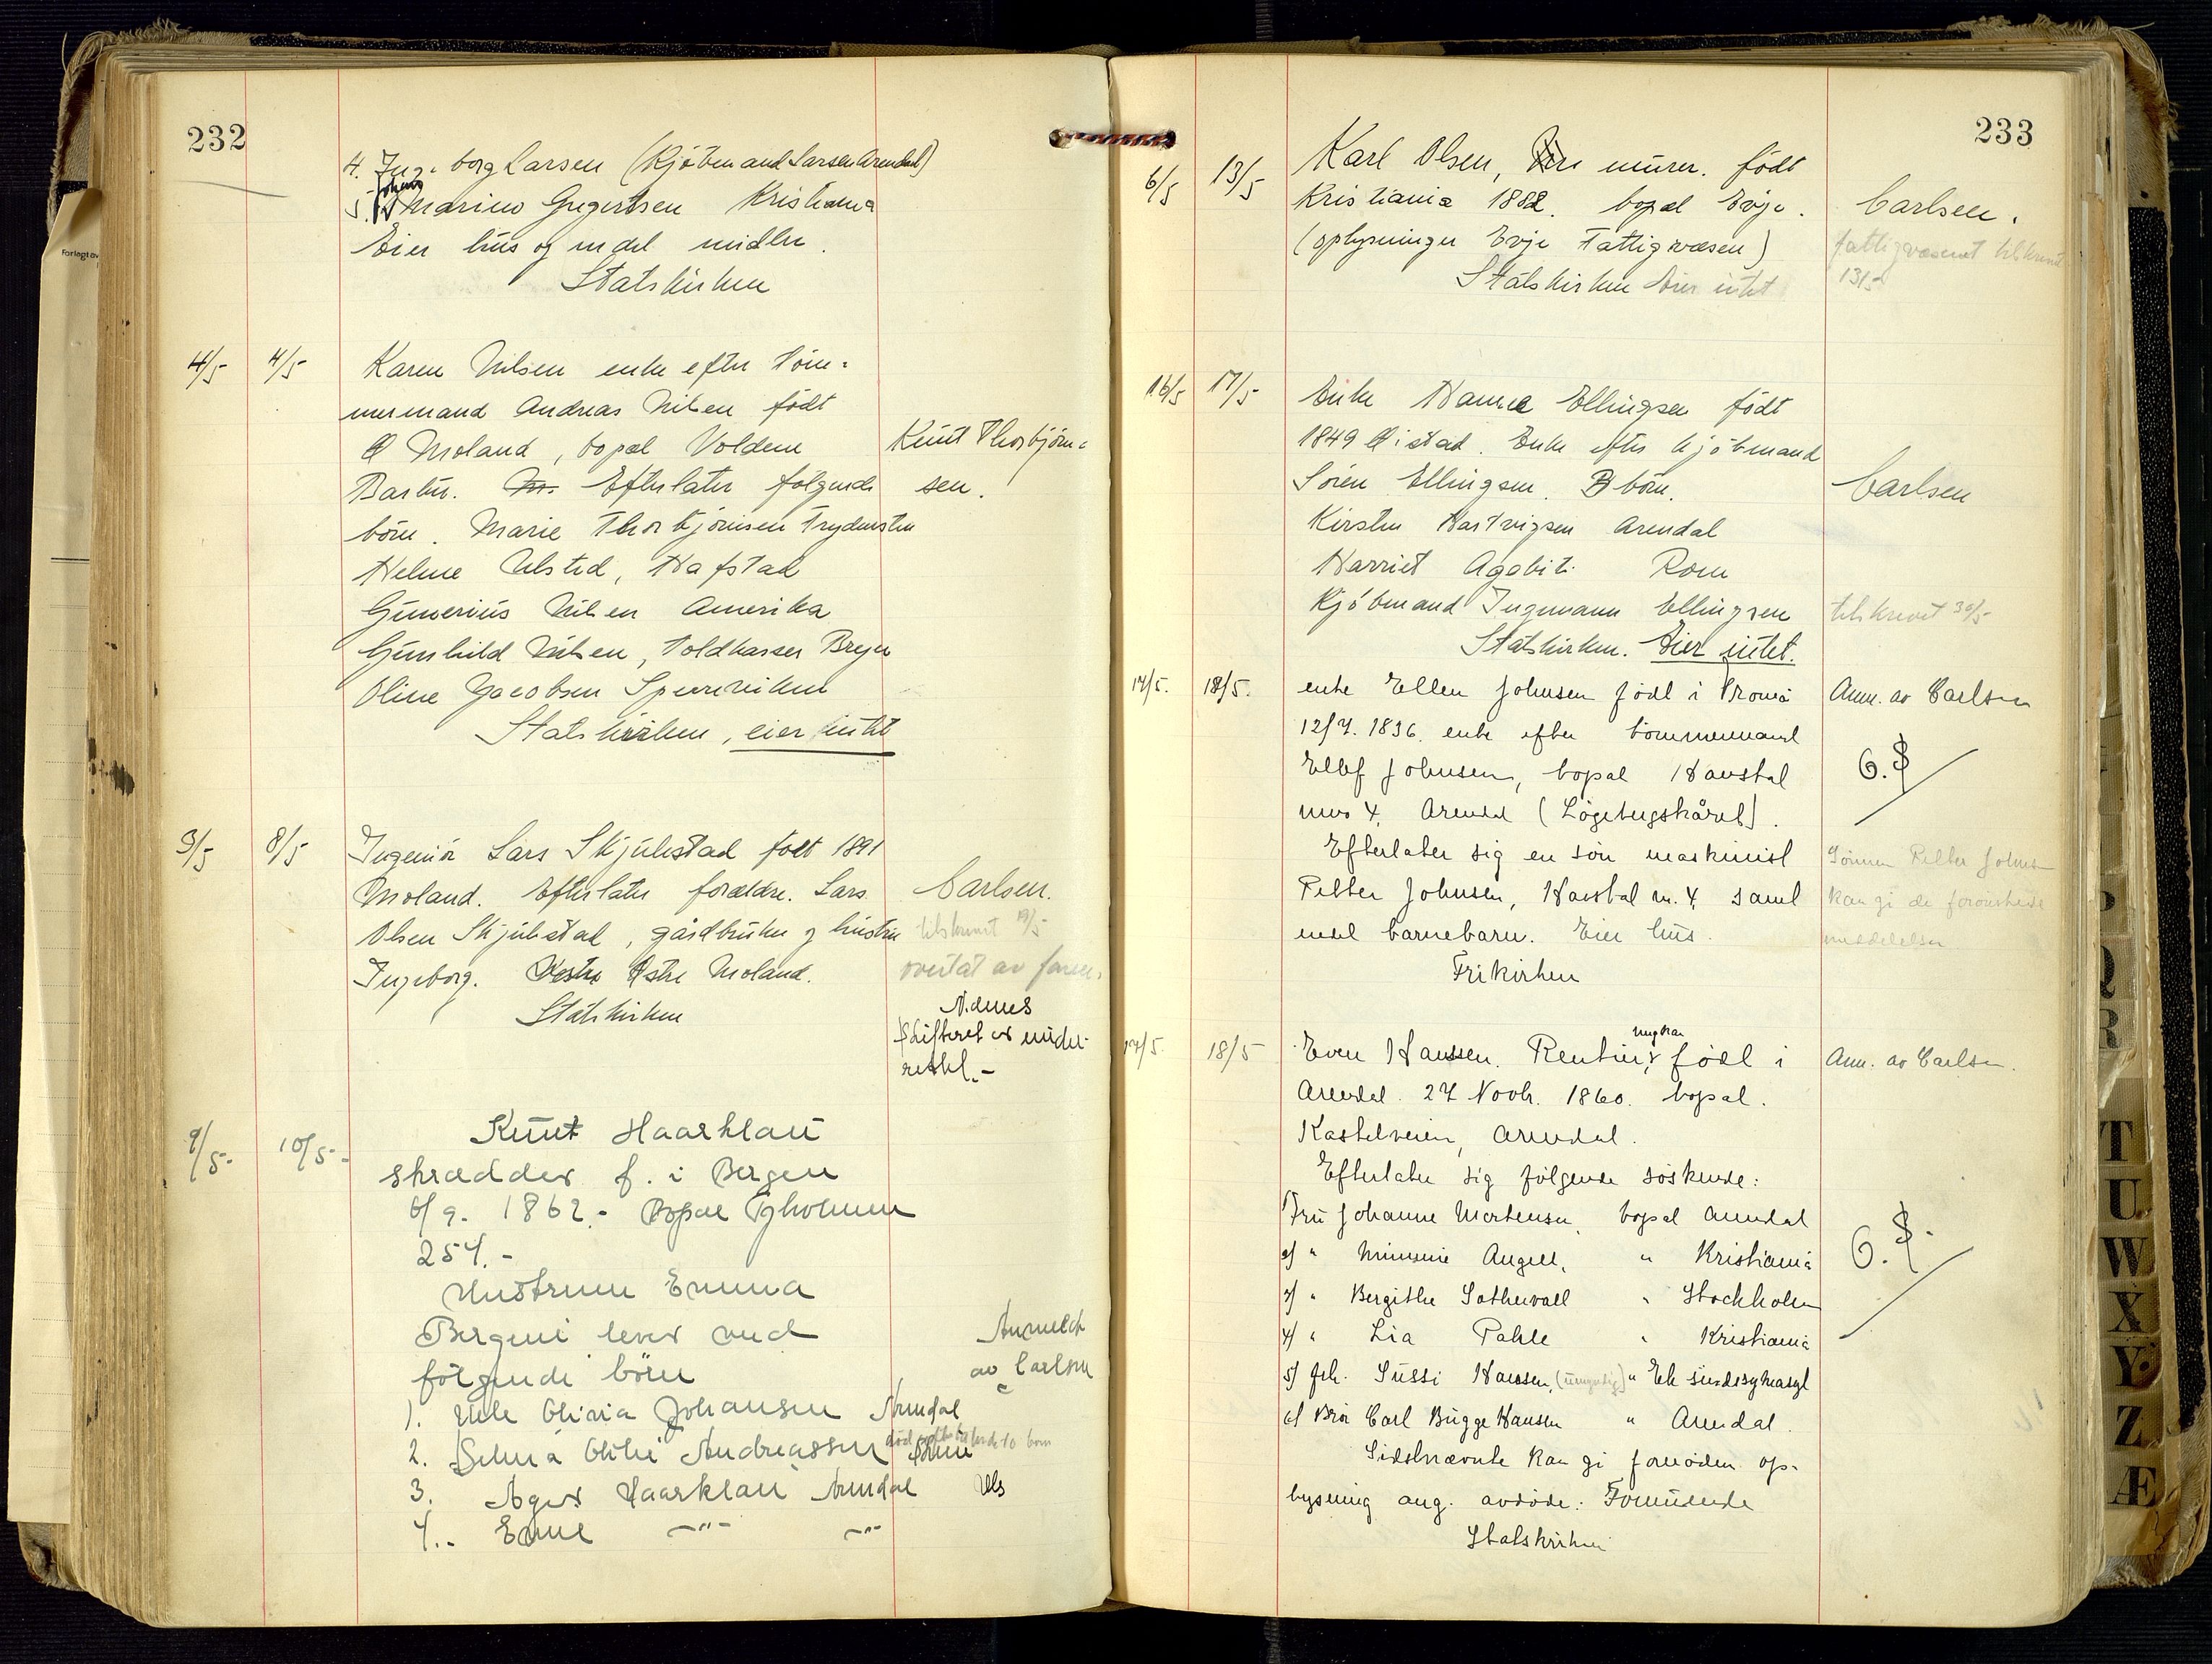 232
4. Inge borg Larsen (Kjøbmand Larsen Arendal)
5. Johens Marino Gregertsen Kristiania
Eier hus og en del midler.
Statskirken
4/5 4/5 Karen Nilsen enke efter Töm=
mermand Andreas Nilsen födt
Ø Moland, bopæl Voldene
Barbu. Efterlater følgende
börn. Marie Thorbjörnsen Trydensten
Helme Ulsted, Hafstad
Gunerius Nilsen Amerika
Gunhild Nilsen, Toldkasser Bryn
Oline Jacobsen Spurevikene
Statskirken, eier intet
Knut Thorbjörn=
sen.
3/5 8/5 Ingeniör Lars Skjulestad födt 1891
Moland. Efterlater forældre. Lars
Olsen Skjulestad, gårdbruker og hustru
Ingeborg. Østre Moland.
Statskirken
Carlsen.
tilskrevet 19/5
overtat av faren.
Nedenes
skifteret er under-
rettet.-
9/5- 10/5-
Knut Haarklau
skrædder f. i Bergen
6/9. 1862.- Bopæl Tyholmen
254.-
Hustruen Emma
Bergine lever med
følgende börn
1. Olivia Johansen Arendal
2. Selma Otilie Andreassen
3. Ager Haarklau Arendal
4.. -"- -"-
Anmeldt
av Carlsen
233
6/5 13/5 Karl Olsen, murer. födt
Kristiania 1882. bopæl Evje.
(oplysninger Evje Fattigvæsen)
Statskirken Eier intet
Carlsen.
fattigvæsenet tilskrevet
13/5
16/5 17/5 Enke Hanna Ellingsen födt
1849 Øistad. Enke efter kjöbmand
Sören Ellingsen. 3 börn.
Kirsten Hartvigsen Arendal
Harriet Agabiti Rom
Kjöbmand Ingmann Ellingsen
Statskirken. Eier intet.
Carlsen
tilskrevet 30/5-
17/5. 18/5. enke Ellen Johnsen födt i Tromö
12/7. 1836. enke efter tömmermand
Ellef Johnsen, bopæl Havstad
mro 4, Arendal (Lögebugskåret).
Efterlater sig en sön maskinist
Petter Johnsen, Havstad nr. 4, samt
endel barnebarn. Eier hus.
Frikirken
Anm. av Carlsen
6. $
Sönnen Petter Johns-
kan gi de forønskede
meddelelser
17/5. 18/5 Even Hansen. Rentier, ungkar födt i
Arendal. 27 Novbr. 1860. bopæl.
Kastelveien, Arendal.
Efterlater sig følgende söskende:
Fru Johanne Mortensen, bopæl Arendal
2/ " Mimmie Angell, " Kristiania
3/ " Bergithe Sothervall " Stockholm
4/ " Lia Pahle " Kristiania
5/ frk. Sussi Hansen, (umyndig) " Ek sindssykeasyl
6/ Bror Carl Bugge Hansen " Arendal.
Sidstnævnte kan gi fornöden op-
lysning ang. avdöde: Formuende
Statskirken
Anm. av Carlsen.
6. $.
P
Q
R
T
U
W
X
Y
Z
Æ